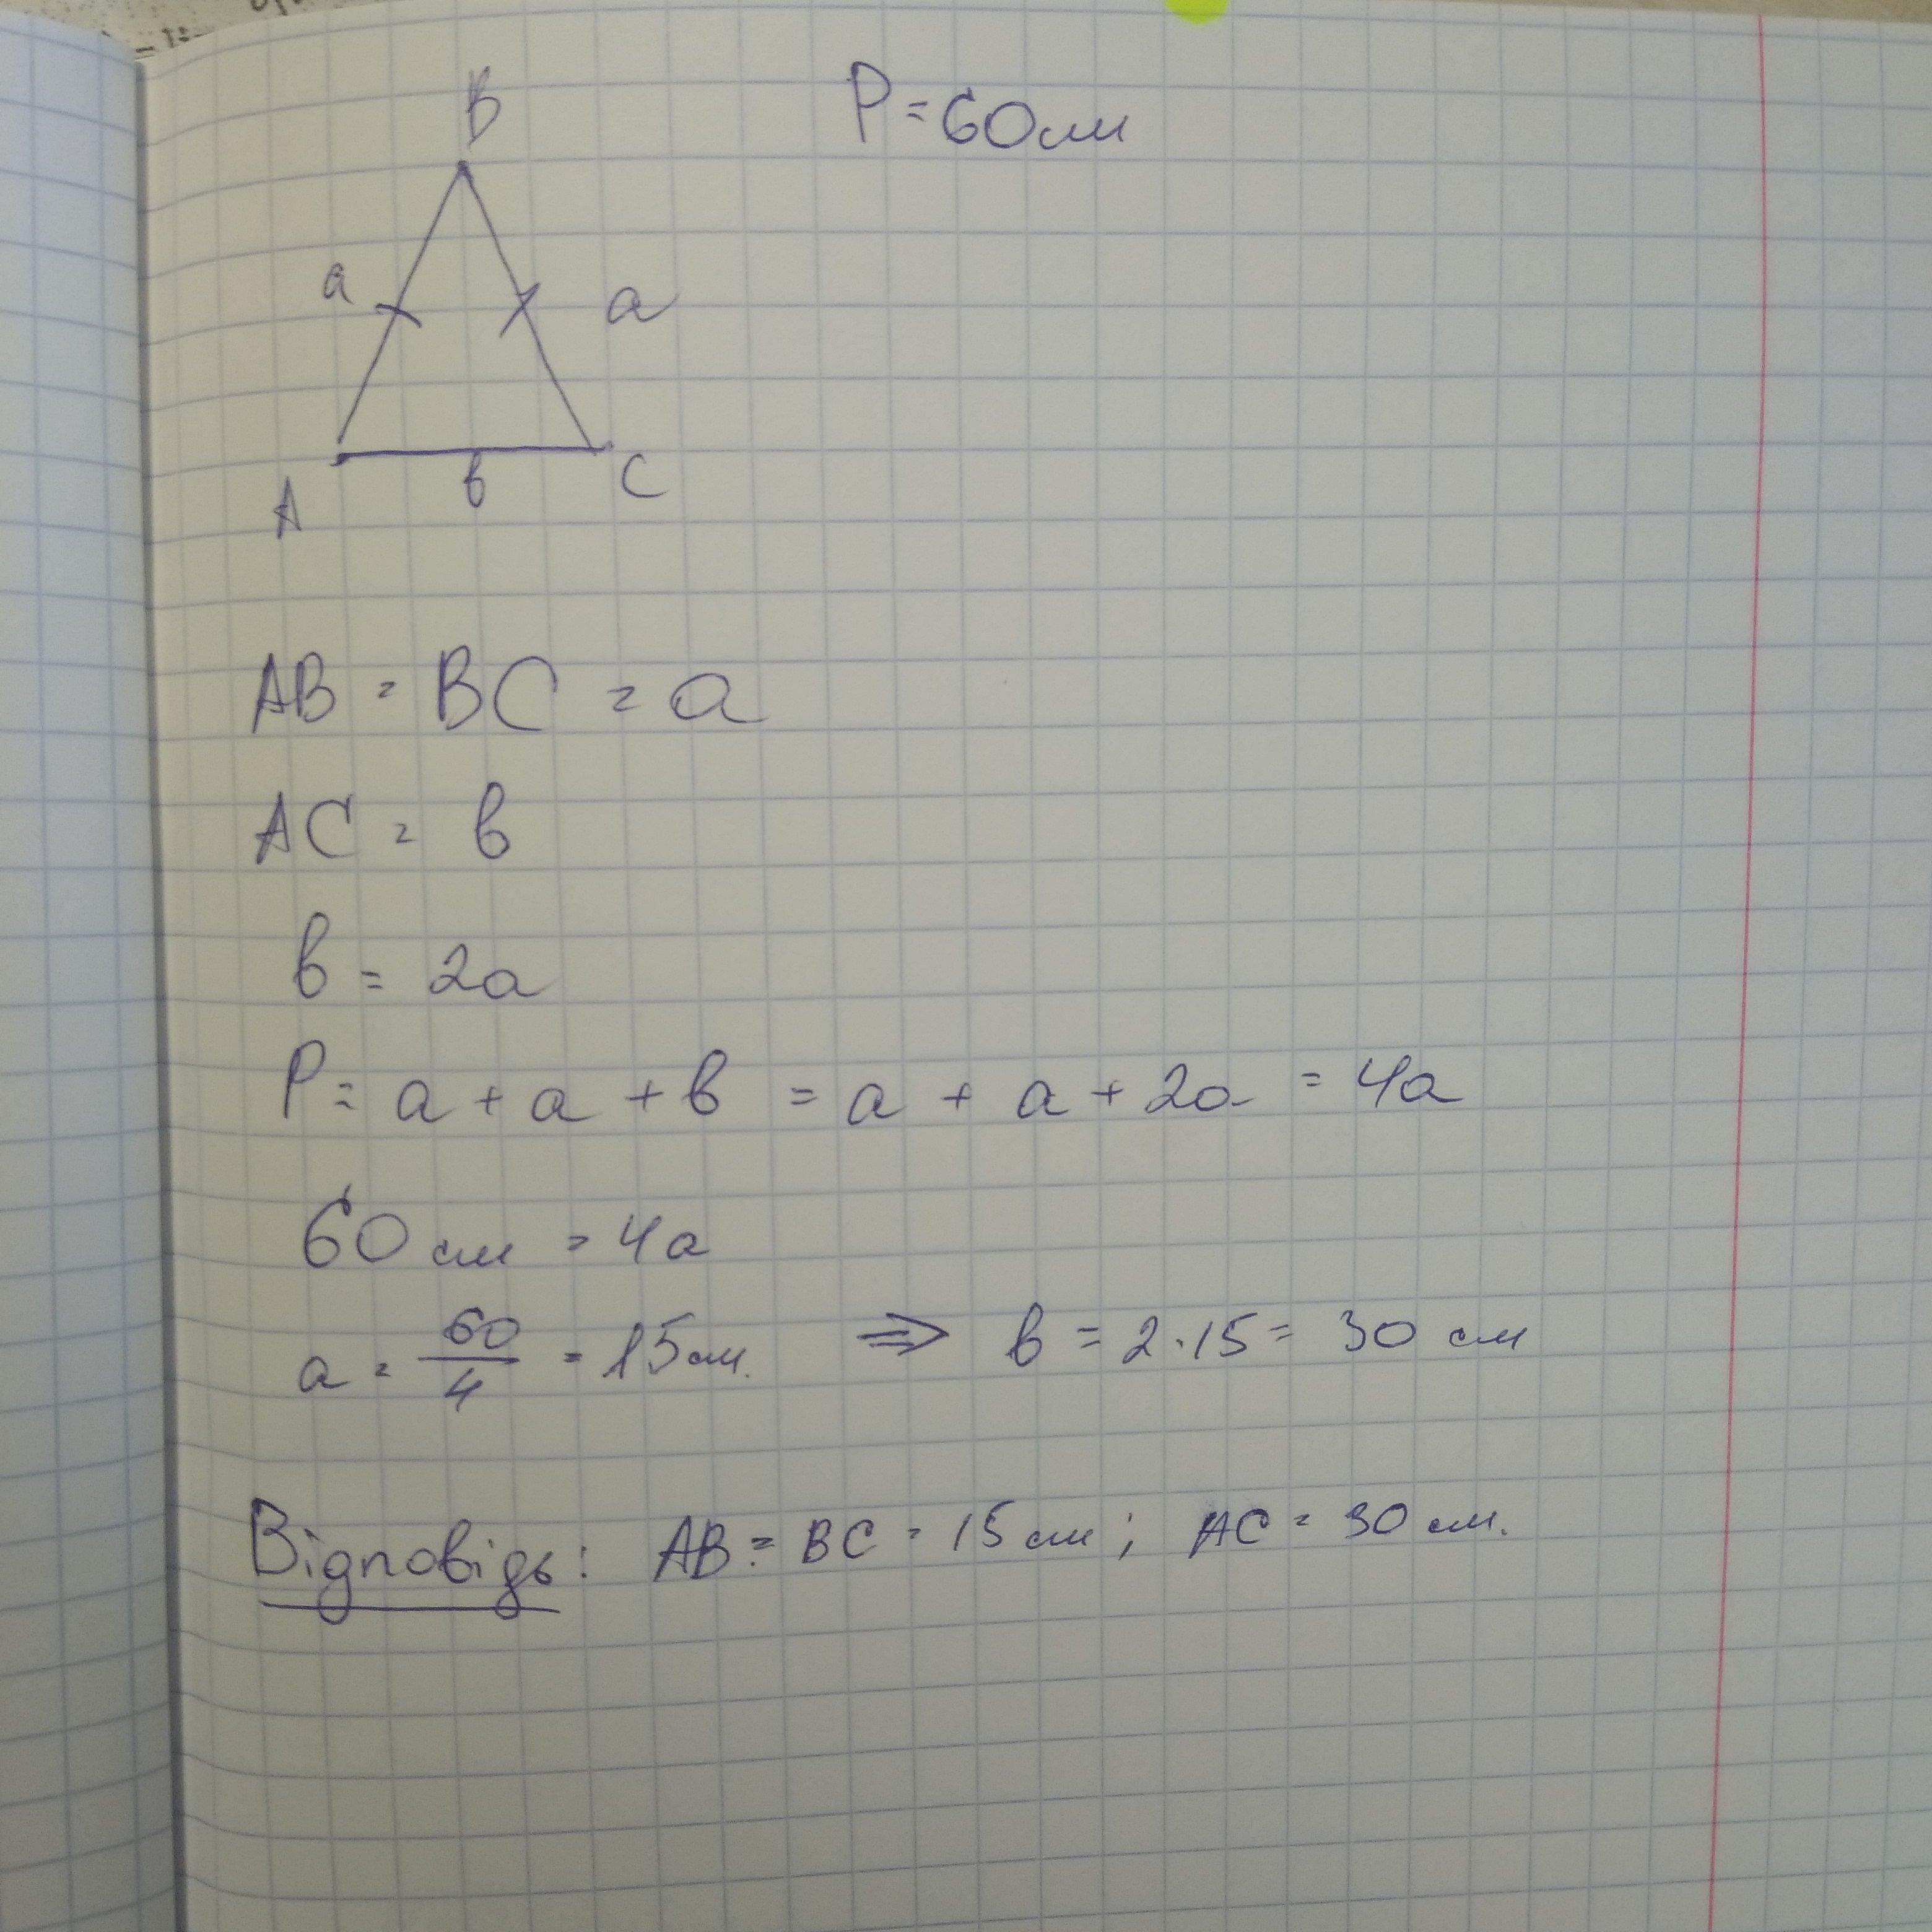 B
P = 60 см
a
a
A
в
C
AB = BC = a
AC = в
в = 2a
P = a + a + в = a + a + 2a = 4a
60 см = 4a
a = 60/4 = 15 см. ⇒ в = 2·15 = 30 см
Відповідь: AB = BC = 15 см; AC = 30 см.